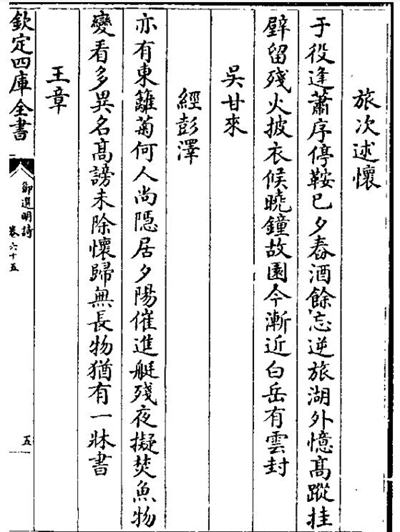 旅次述懷
于役逢蕭序停鞍已夕舂酒餘忘逆旅湖外憶髙蹤挂
壁留殘火披衣候曉鐘故園今漸近白岳有雲封
吳甘來
經彭澤
亦有東籬菊何人尚隠居夕陽催進艇殘夜擬焚魚物
變看多異名髙謗未除懷歸無長物猶有一牀書
王章
欽定四庫全書
御選明詩
卷六十五
五